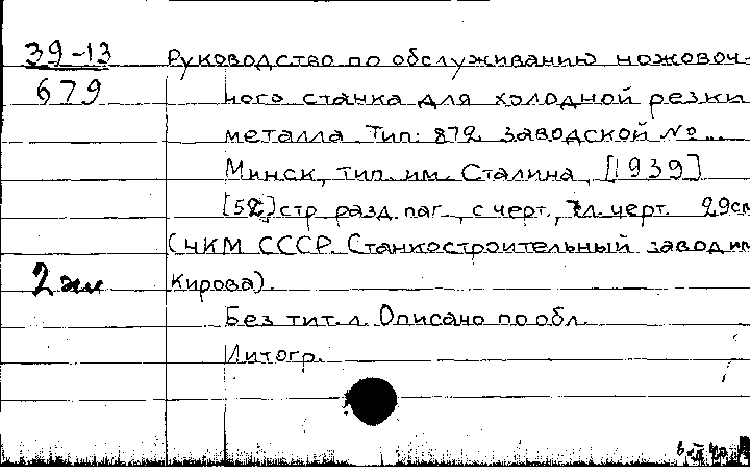 39-13
679
Руководство по обслуживанию ножовоч-
ного станка для холодной резки
металла Тип: 872 заводской № ...
Минск, тип. им. Сталина, [1939]
[52] стр. разд. паг., с черт., л. черт. 29см
(НКМ СССР. Станкостроительный завод им
Кирова).
2 эк
Без тит. л. Описано по обл.
Литогр.